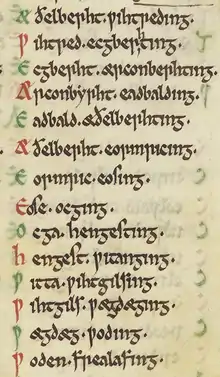 Æðelberht . ƿihtreding .
Ƿihtred . ecgberhting .
Ecgberht . ærconberhting .
Ærconbyrht . eadbalding .
Eadbald . æðelberhting .
Æðelberht . eormnricing .
Eormnric . oesing .
Oese . ocging .
Oega . hengesting .
Hengest . ƿitanging .
Ƿitta . ƿihtgilsing .
Ƿihtgils . ƿægdæging .
Ƿægdæg . ƿoding .
Ƿoden . frealafing .